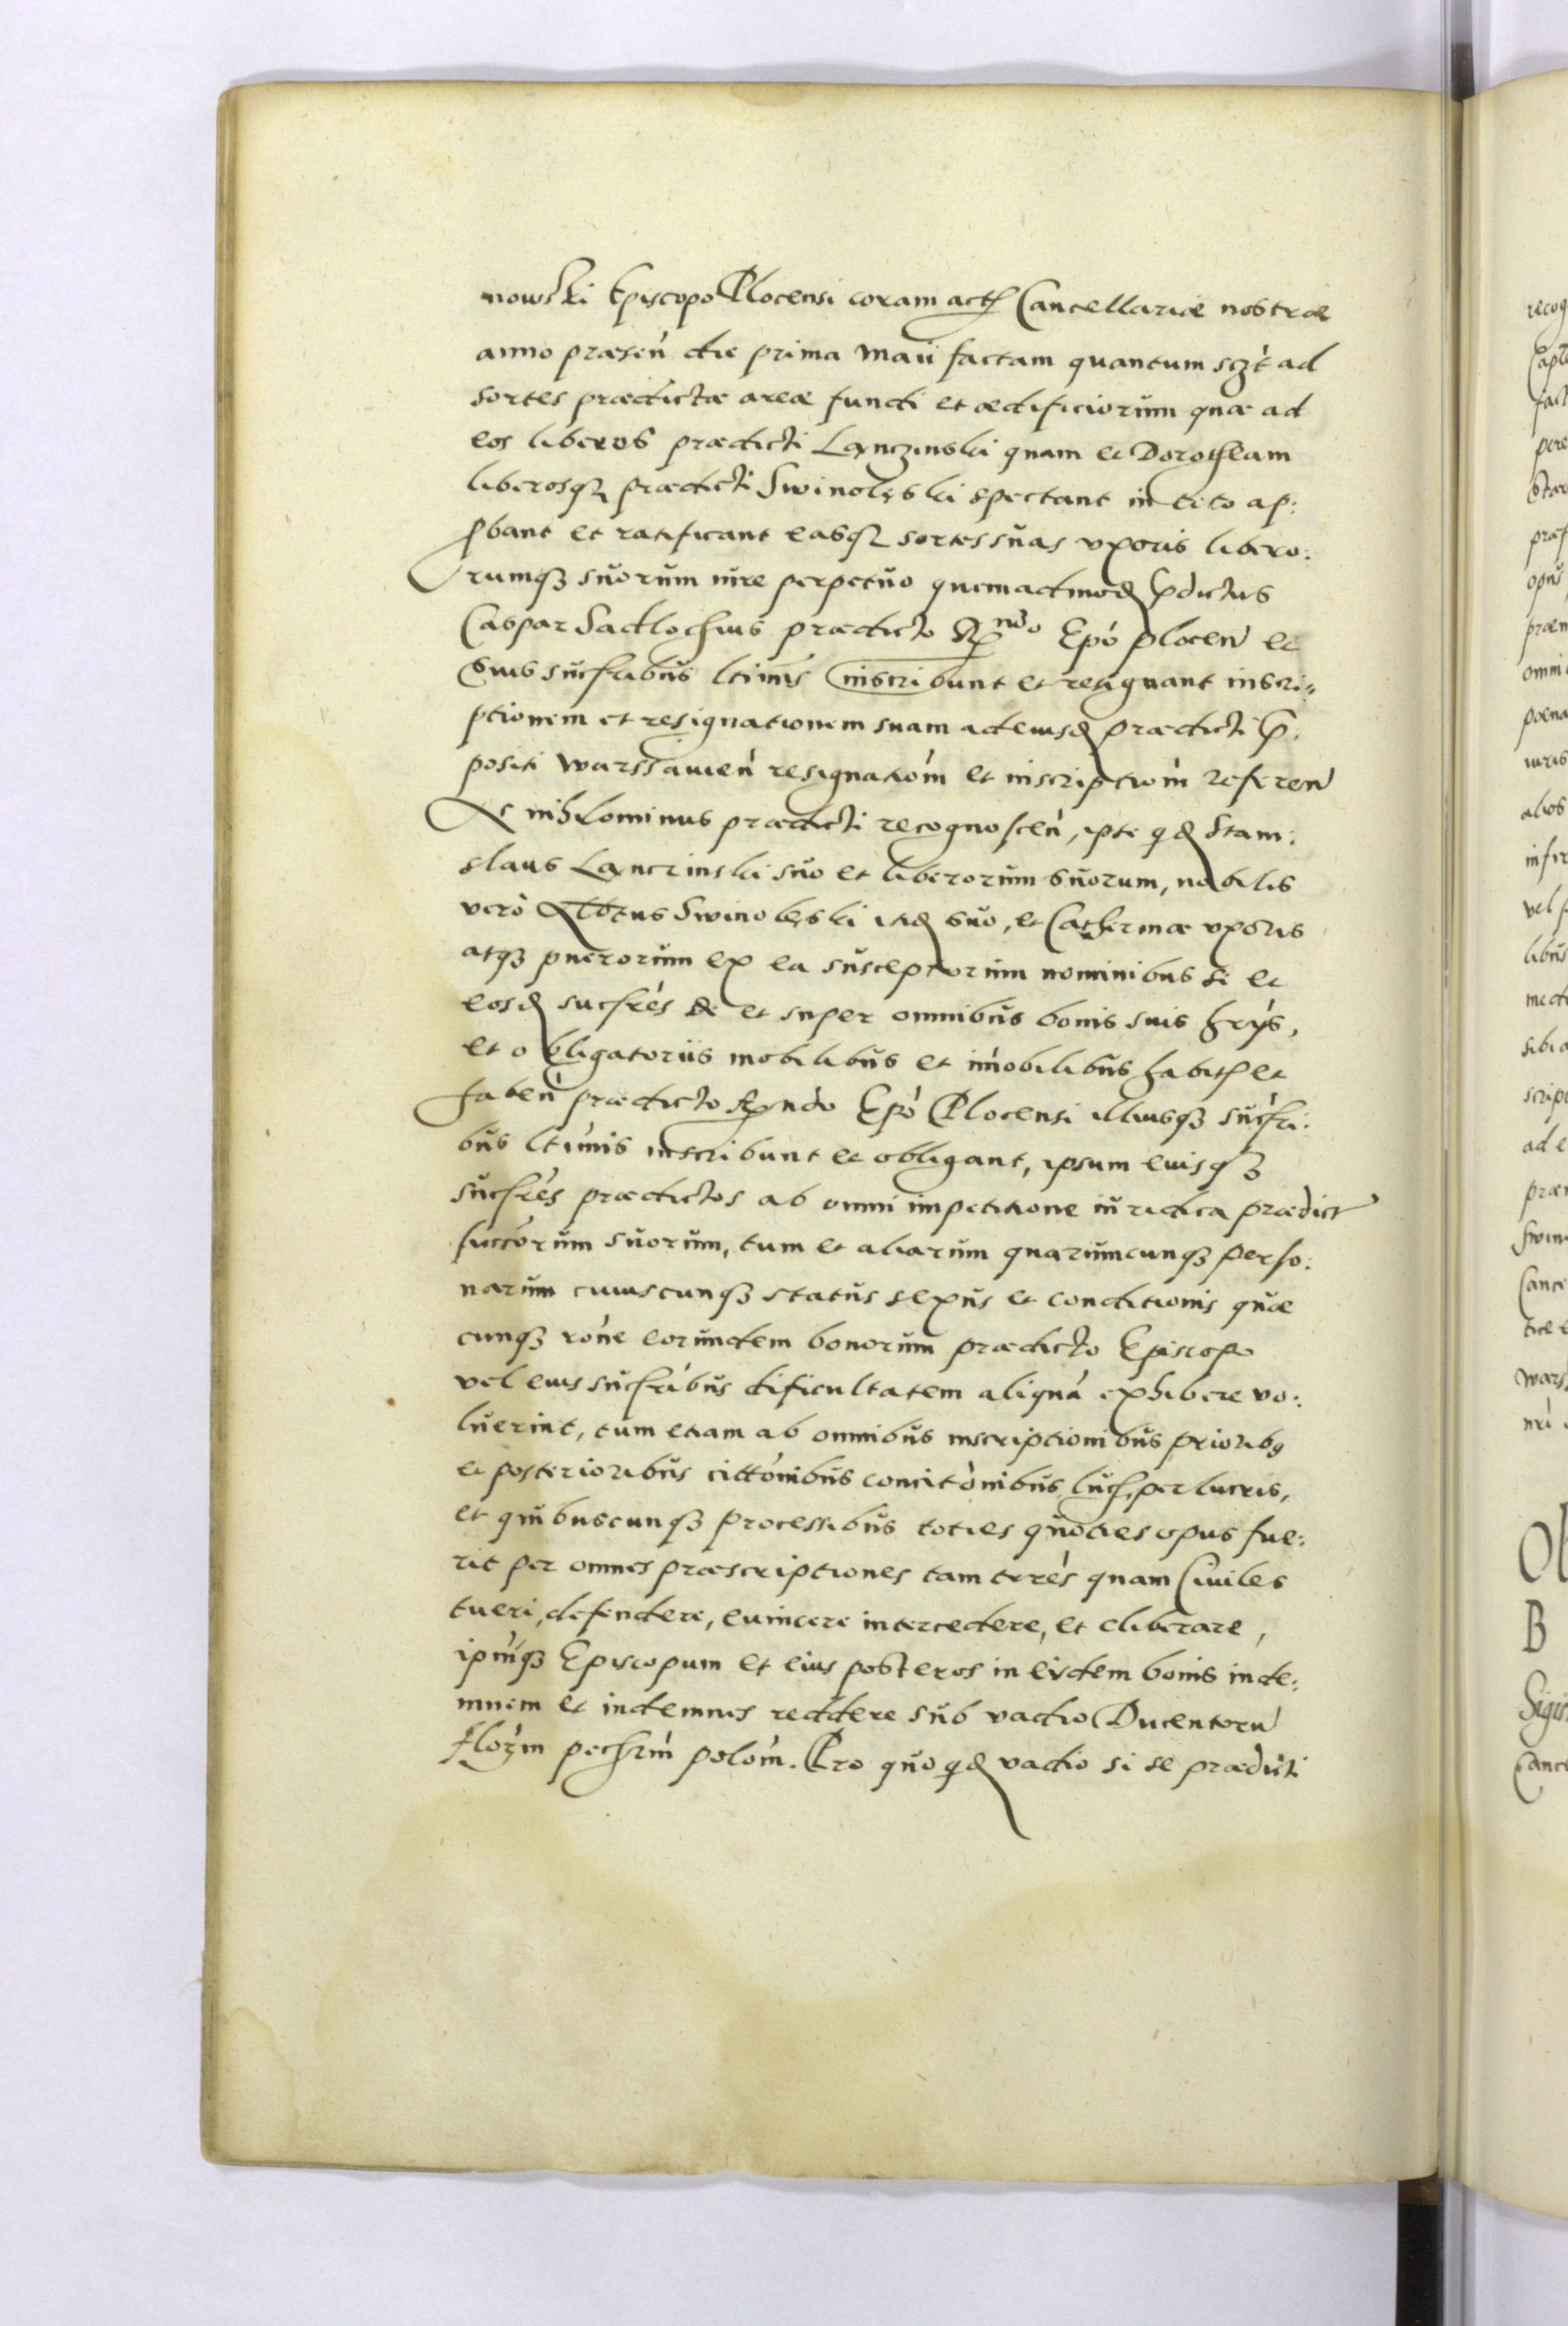 nowski Episcopo Plocensi coram actę Cancellariæ nostræ
anno præsen̄ die prima Maii factam quantum sczt ad
sortes prædictæ areæ fundi et ædificiorum quæ ad
eos liberos prædicti Lanczinski quam et Dorotheam
liberosqȝ prædicti Swinolęski spectant in toto ap:
pbant et ratificant easqȝ sortes suas vxoris libero:
rumqȝ suorum iure perpetuo quemadmod pdictus
Caspar Sadlochius prædicto Rndo Epo plocen̄ et
suis sucsribus ltimis inscribunt et resignant inscri„
ptionem et resignationem suam ad eiusd prædicti p:
positi Warssauien̄ resignatiom et inscriptiom referen̄
Et nihlominus prædicti recognoscen̄, ipse qd Stani:
slaus Lancrinski suo et liberorum suorum, nobilis
vero Albtus Swinolęski itid suo, et Catherinæ vxoris
atqȝ puerorum ex ea susceptorum nominibus se et
eosd sucsres de et super omnibus bonis suis hrijs,
et obligatoriis mobilibus et imobilibus habitę et
haben̄ prædicto Rndo Epo Plocensi illiusqȝ sucsri:
bus ltimis inscribunt et obligant, ipsum eiusqȝ
sucsres prædictos ab omni impetitione iuridica prædict
succorum suorum, tum et aliarum quarumcunqȝ perso:
narum cuiuscunqȝ status sexus et conditionis quæ
cunqȝ rone eorundem bonorum prædicto Episcopo
vel eius sucsribus dificultatem aliqua exhibere vo:
luerint, tum etiam ab omnibus inscriptionibus prioribq
et posterioribus cittonibus concitonibus, lucs, per lucris,
et quibuscunqȝ processibus toties quoties opus fue:
rit per omnes præscriptiones tam terres quam Ciuiles
tueri, defendere, euincere intercedere, et eliberare,
ipmqȝ Episcopum et eius posteros in eisdem bonis inde:
mnem et indemnes reddere sub vadio Ducentoru
florȝm pechrm polom. Pro quo qd vadio si se prædicti